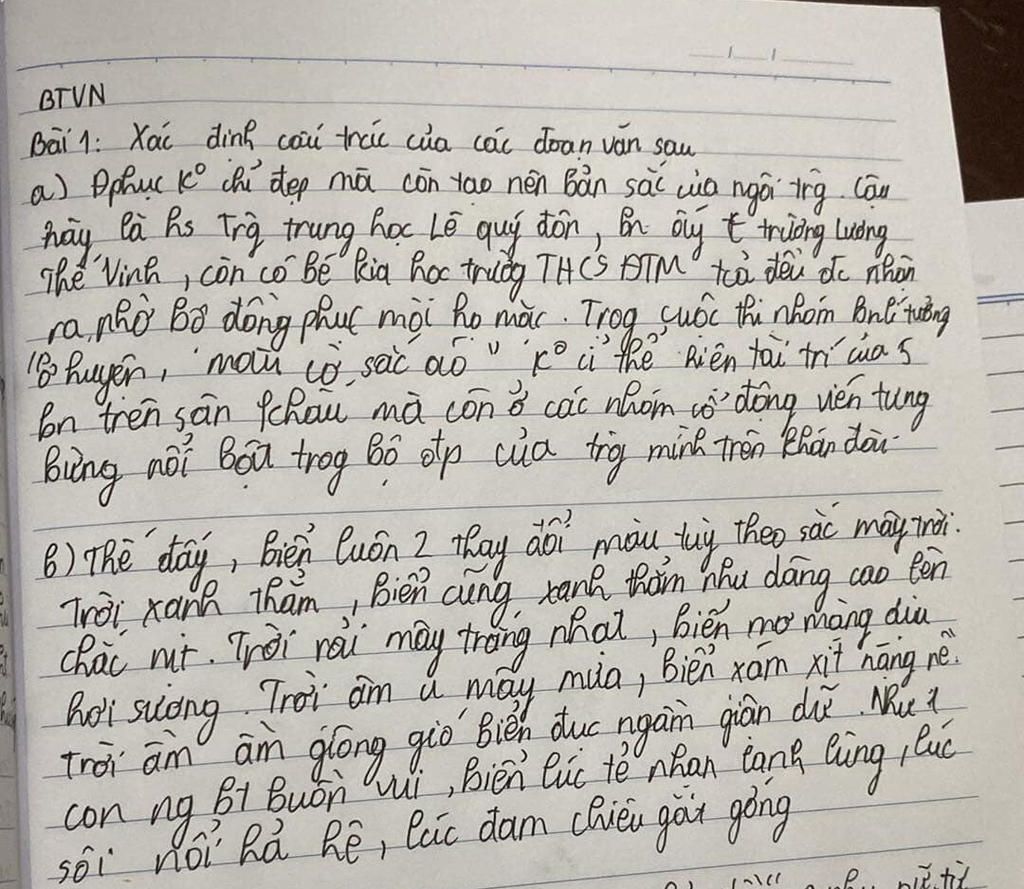 BTVN
Bài 1: Xác định cấu trúc của các đoạn văn sau
a) Đphục kº chỉ đẹp mà còn tạo nên bản sắc của ngôi trg. Cậu
này là hs Trg trung học Lê quý đôn, bn ấy t trường Lương
Thế Vinh, còn cô bé kia học trường THCS ĐTM tcả đều đc nhận
ra nhờ bộ đồng phục mọi họ mặc. Trog cuộc thi nhóm bn lí tưởng
ở huyện, "màu cờ, sắc áo" kº cỉ thể hiện tài trí của 5
bn trên sân kchấu mà còn ở các nhóm cổ động viên tưng
bừng nổi bật trog bộ đp của trg mình trên khán đài.
b) Thế đấy, biển luôn 2 thay đổi màu tùy theo sắc mây trời.
Trời xanh thẳm, biển cũng xanh thẳm như dâng cao lên
chắc nịt. Trời rải mây trắng nhạt, biển mơ màng dịu
hơi sương. Trời âm u mây mưa, biển xám xịt nặng nề.
Trời ầm ầm giông gió biển đục ngầm giận dữ. Như 1
con ng bt buồn vui, biển lúc tẻ nhạn lạnh lùng, lúc
sôi nổi hả hê, lúc đam chiêu gắt gỏng